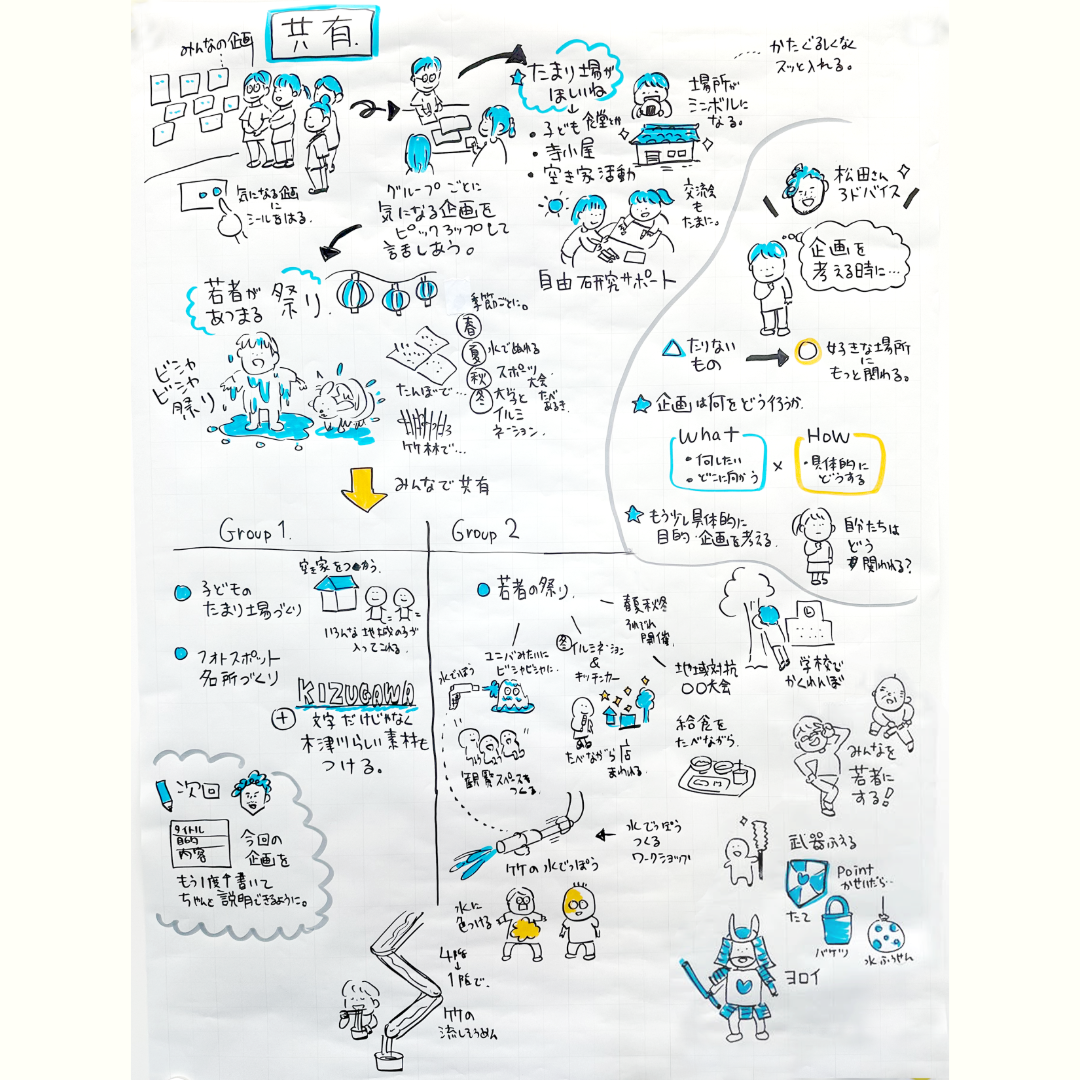 共有
みんなの企画
気になる企画
にシールをはる.
グループごとに
気になる企画を
ピックアップして
話しあう。
たまり場が
ほしいね
・子ども食堂とか
・寺小屋
・空き家活動
場所が
シンボルに
なる。
かたくるしくなく
スッと入れる。
交流会
も
たまに。
自由研究サポート
若者が
あつまる
祭り.
ビシャ
ビシャ
祭り
季節ごとに。
春
夏 水でぬれる
秋 スポーツ
大会
冬 大学と
イルミ
ネーション.
たべ
あるき.
たんぼで…
竹林で…
みんなで共有
松田さん
アドバイス
企画を
考える時に…
たりない
もの
好きな場所
に
もっと関れる。
企画は何をどうやろうか.
What
・何したい
・どこに向かう
×
How
・具体的に
どうする
もう少し具体的に
目的・企画を考える.
自分たちは
どう
関われる?
Group 1.
子どもの
たまり場づくり
空き家をつかう.
いろんな地域の子が
入ってこれる.
フォトスポット
名所づくり
KIZUGAWA
+ 文字だけじゃなく
木津川らしい素材も
つける。
次回
タイトル
目的
内容
今回の
企画を
もう1度書いて
ちゃんと説明できるように。
Group 2
若者の祭り.
春夏秋冬
それぞれ
開催.
ユニバみたいに
ビシャビシャに.
水でっぽう
冬 イルミネーション
&
キッチンカー
たべながら店
まわれる.
観覧スペースも
つくる.
地域対抗
○○大会
学校で
かくれんぼ
給食を
たべながら.
みんなを
若者に
する!
竹の水でっぽう
水でっぽう
つくる
ワークショップ
水に
色つける
4階
↓
1階で.
竹の
流しそうめん
武器ふえる
Point
かせいだら…
たて
バケツ
水ふうせん
ヨロイ